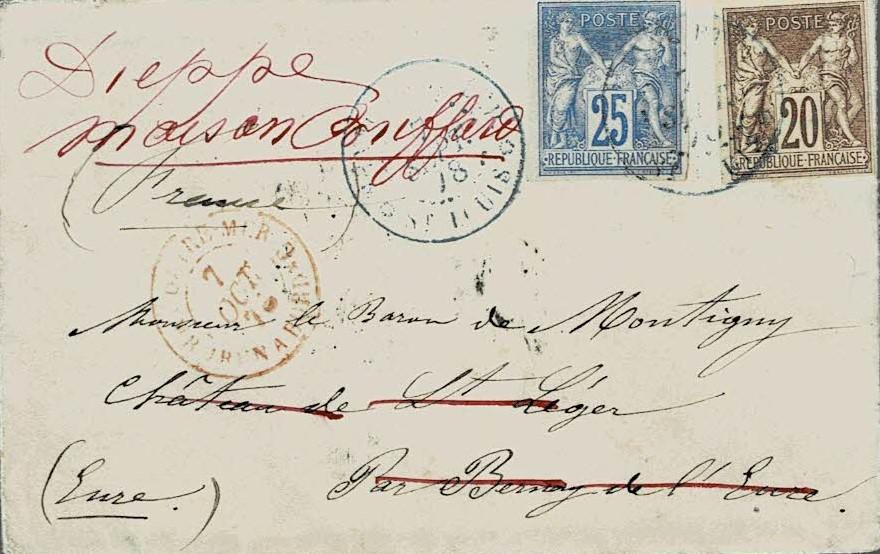 Dieppe
maison Bouffard
(France)
POSTE
25
REPUBLIQUE FRANÇAISE
POSTE
20
REPUBLIQUE FRANÇAISE
78
ST LOUIS
OUTRE-MER
7
OCT
Monsieur le Baron de Montigny
Château de St Léger
Par Bernay de l'Eure
(Eure)